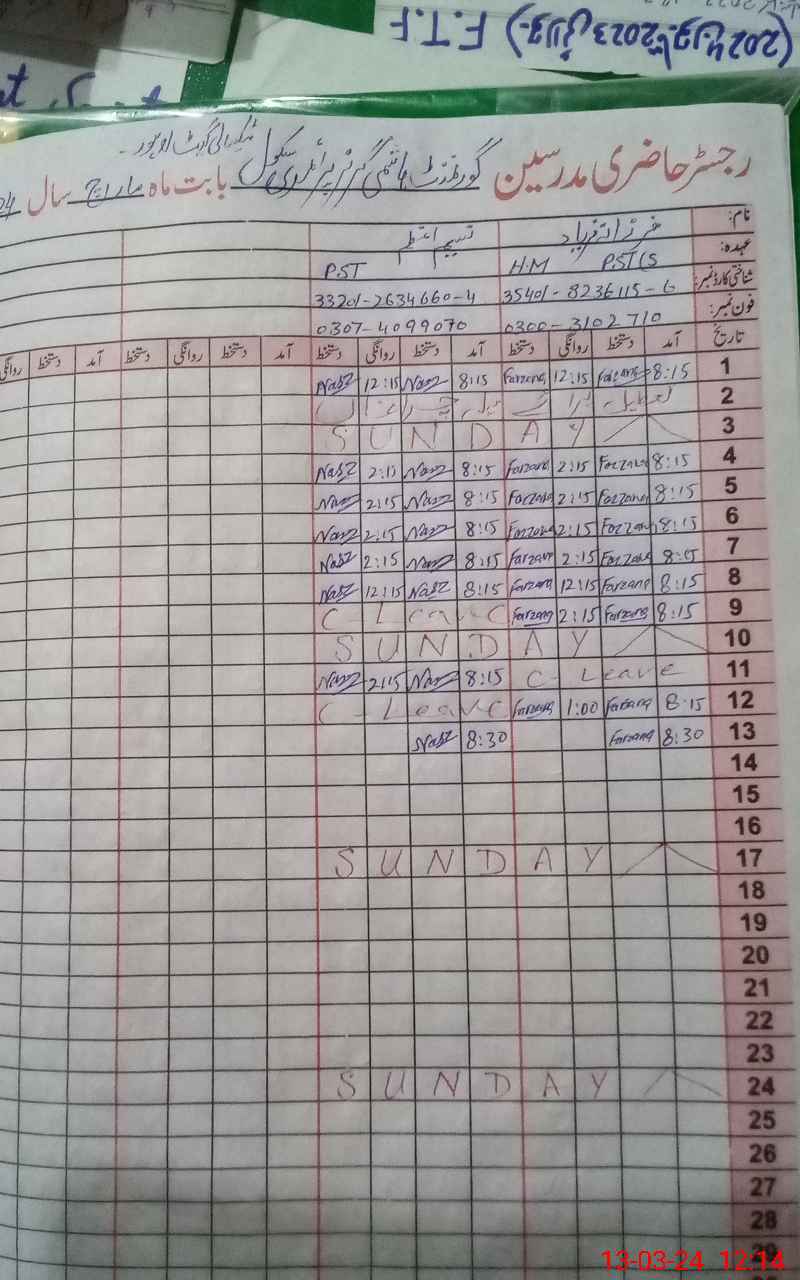 (جولائی 2023 تا جون 2024) F.T.F
ٹیکسالی گیٹ لاہور۔
رجسٹر حاضری مدرسین گورنمنٹ ہاشمی گرلز پرائمری سکول بابت ماہ مارچ سال
نام: فرزانہ فریاد نسیم اعظم
عہدہ: H.M P.ST(S P.ST
شناختی کارڈ نمبر: 35401-8236115-6 33201-2634660-4
فون نمبر: 0300-3102710 0307-4099070
تاریخ آمد دستخط روانگی دستخط آمد دستخط روانگی دستخط آمد دستخط روانگی دستخط آمد دستخط روانگی
1 8:15 Farzana 12:15 Farzana 8:15 Nasz 12:15 Nasz
2 تعطیل برائے میلہ چراغاں
3 SUNDAY
4 8:15 Farzana 2:15 Farzana 8:15 Nasz 2:15 Nasz
5 8:15 Farzana 2:15 Farzana 8:15 Nasz 2:15 Nasz
6 8:15 Farzana 2:15 Farzana 8:15 Nasz 2:15 Nasz
7 8:15 Farzana 2:15 Farzana 8:15 Nasz 2:15 Nasz
8 8:15 Farzana 12:15 Farzana 8:15 Nasz 12:15 Nasz
9 8:15 Farzana 2:15 Farzana C-Leave
10 SUNDAY
11 C-Leave 8:15 Nasz 2:15 Nasz
12 8:15 Farzana 1:00 Farzana C-Leave
13 8:30 Farzana 8:30 Nasz
14
15
16
17 SUNDAY
18
19
20
21
22
23
24 SUNDAY
25
26
27
28
29
13-03-24 12:14